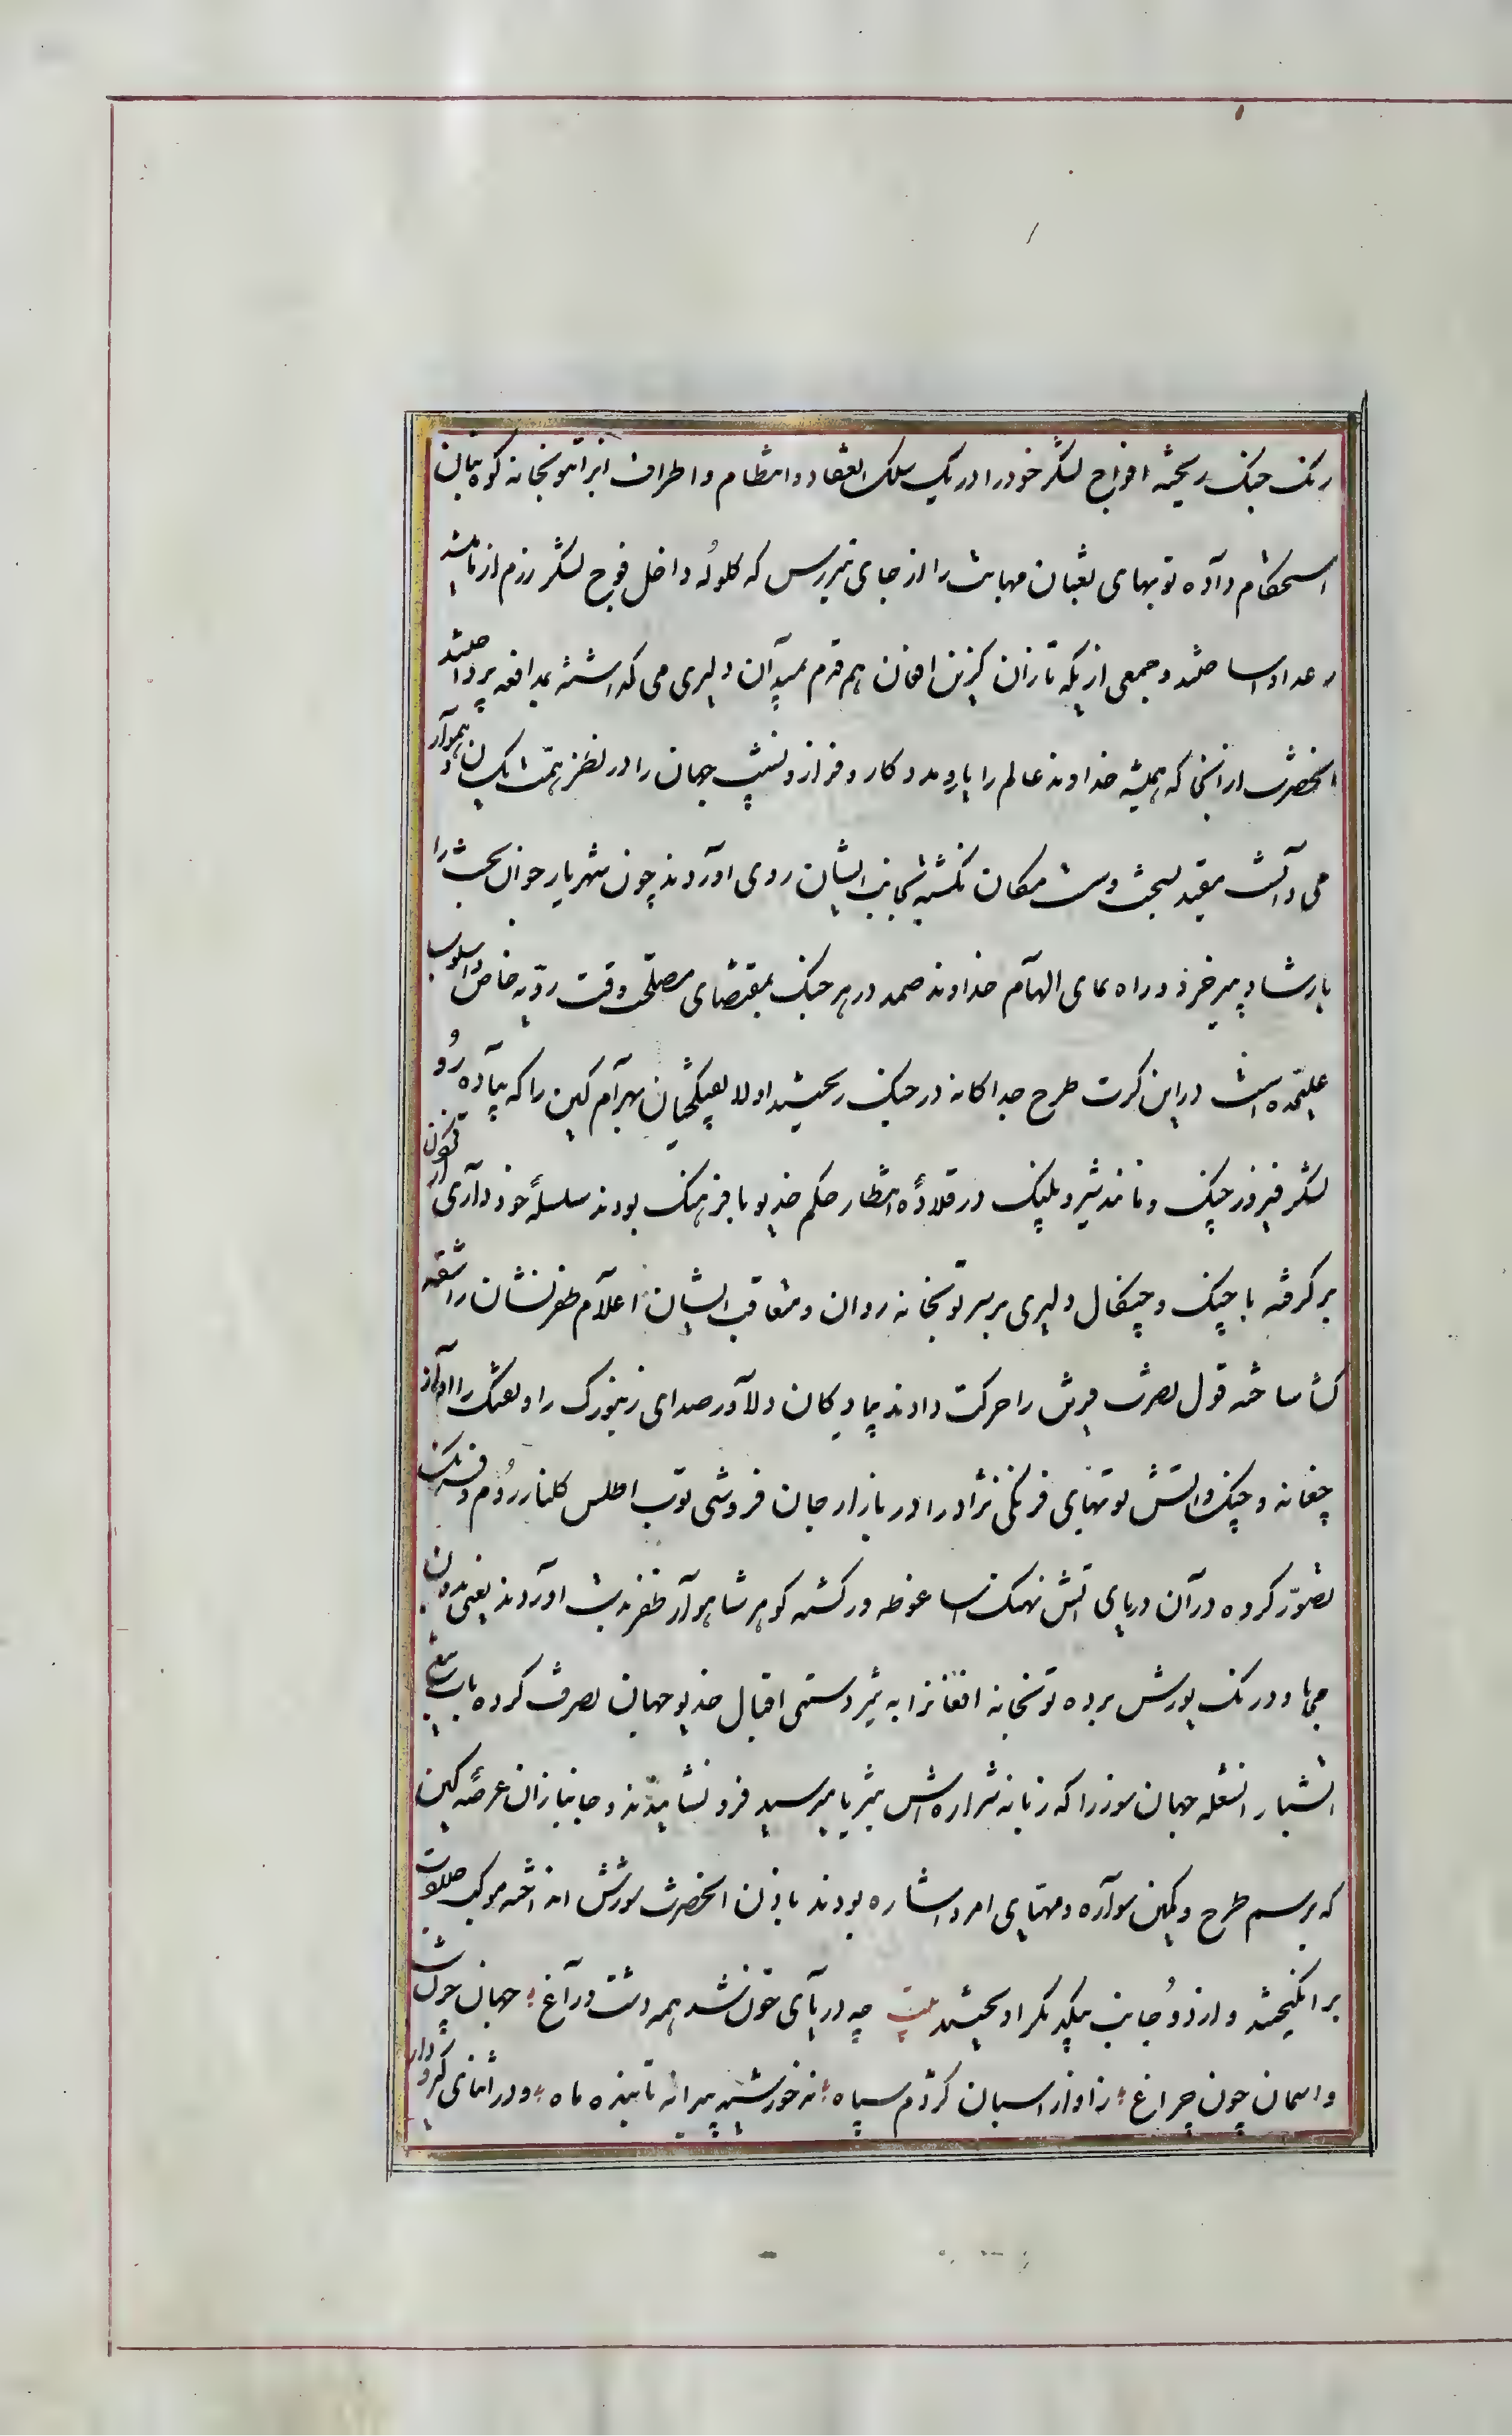 رنک جنک ریخته افواج لشکر خود را در یک سلک انعقاد و انتظام و اطراف انرا بتوپخانه کوه بنیان
استحکام داده توپهای ثعبان مهابت را از جای تیررس که کلوله داخل فوج لشکر رزم از ما شد
رعد اوا ساختند و جمعی از یکه تازان کزین افغان هم قدم بمیدان دلیری می کذاشتند بمدافعه پرداختند
انحضرت از انجا که همیشه خداوند عالم را یار و مددکار و فراز و نشیب جهان را در نظر همت یکسان و هموار
می دانست مقید بسخت و سست مکان نکشته بجانب ایشان روی اوردند چون شهریار جوان بخت را
بارشاد پیر خرد و راه نمای الهام خداوند صمد در هر جنک بمقتضای مصلحت وقت رویه خاص و اسلوب
علیحده است در این کرت طرح جداکانه در جنک ریختند اولا تفنکچیان بهرام کین را که پیاده رو
لشکر فیروز جنک و مانند شیر و پلنک در قلاده انتظار حکم خدیو با فرهنک بودند سلسله خودداری از تکون
بر کرفته با چنک و چنکال دلیری بر سر توپخانه روان و متعاقب ایشان اعلام ظفر نشان را شقه
کشا ساخته قول نصرت یورش را حرکت دادند پیادکان دلاور صدای زنبورک را و تفنک را اواز
چغانه و چنک و اتش توپهای فرنکی نژاد را در بازار جان فروشی توب اطلس کلنار روم و فرنک
تصور کرده در آن دریای اتش نهنک اسا غوطه ور کشته کوهر شاهوار ظفر بدست اوردند یعنی بدون
محابا و درنک یورش برده توپخانه افغانرا به نیر دستی اقبال خدیو جهان تصرف کرده باب تیغ
اتشبار انشعله جهان سوز را که زبانه شراره اش بثریا میرسید فرو نشانیدند و جانبازان عرصه کین
که برسم طرح و کمین سواره و مهیای امر و اشاره بودند باذن انحضرت یورش انداخته مرکب جلادت
بر انکیختند و از دو جانب بیکدیکر اویختند بیت چه دریای خون شد همه دشت و راغ ؛ جهان چون شب
و اسمان چون چراغ ؛ ز اواز اسبان کرد م سپاه ؛ نه خورشید پیدا نه تابنده ماه ؛ و در اثنای کیرودار